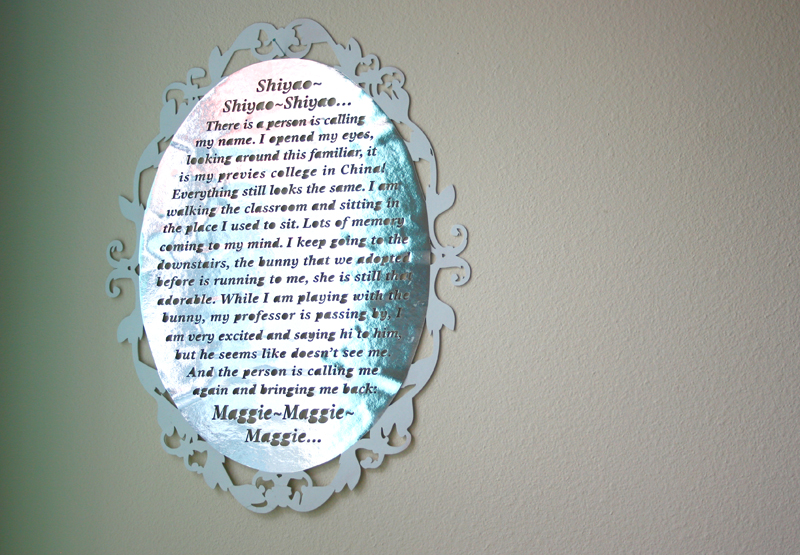 Shiyao~
Shiyao~Shiyao...
There is a person is calling
my name. I opened my eyes,
looking around this familiar, it
is my previes college in China!
Everything still looks the same. I am
walking the classroom and sitting in
the place I used to sit. Lots of memory
coming to my mind. I keep going to the
downstairs, the bunny that we adopted
before is running to me, she is still that
adorable. While I am playing with the
bunny, my professor is passing by. I
am very excited and saying hi to him,
but he seems like doesn't see me.
And the person is calling me
again and bringing me back:
Maggie~Maggie~
Maggie...